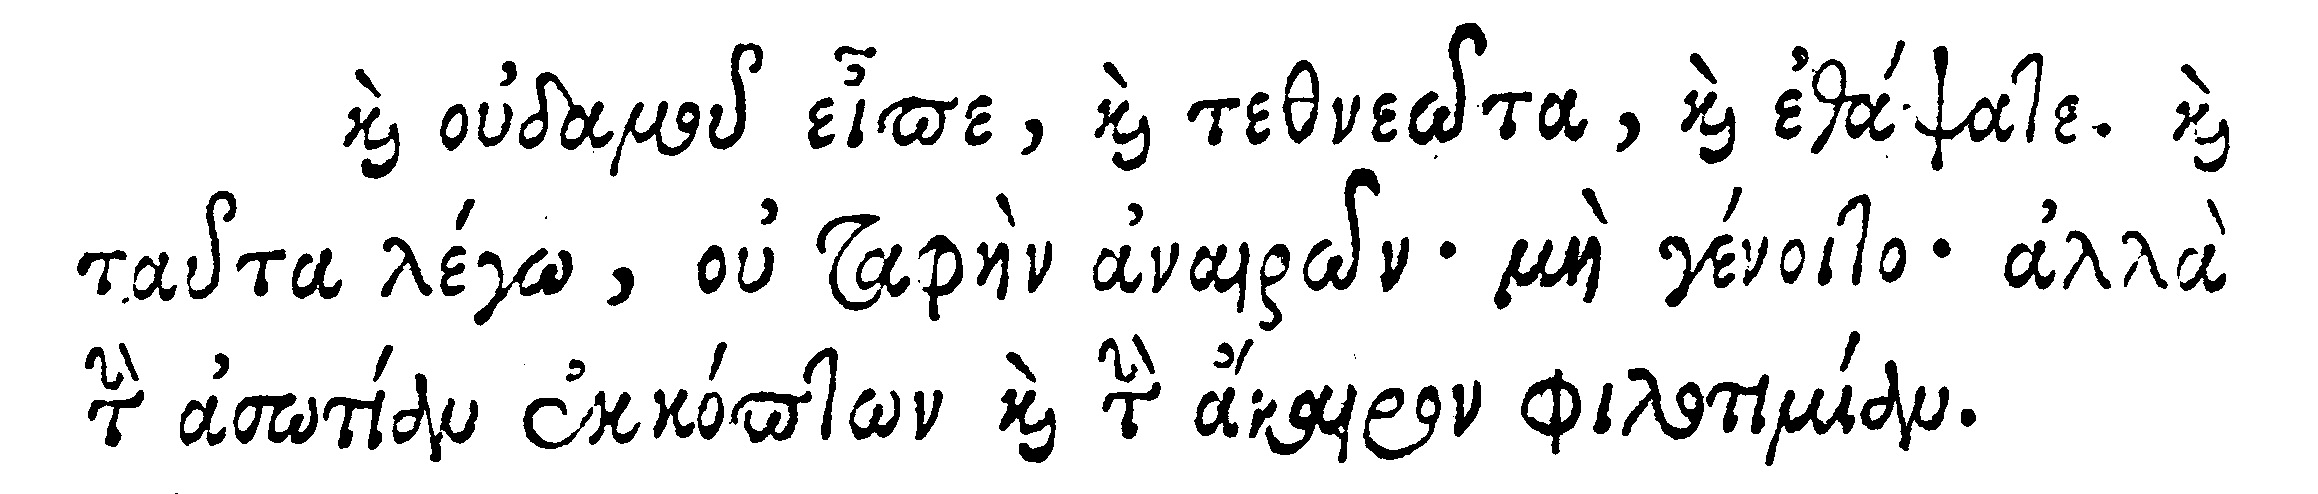 καὶ οὐδαμοῦ εἶπε, καὶ τεθνεῶτα, καὶ ἐθάψατε. καὶ
ταῦτα λέγω, οὐ ταφὴν ἀναιρῶν· μὴ γένοιτο· ἀλλὰ
τὴν ἀσωτίαν ἐκκόπτων καὶ τὴν ἄκαιρον φιλοτιμίαν.